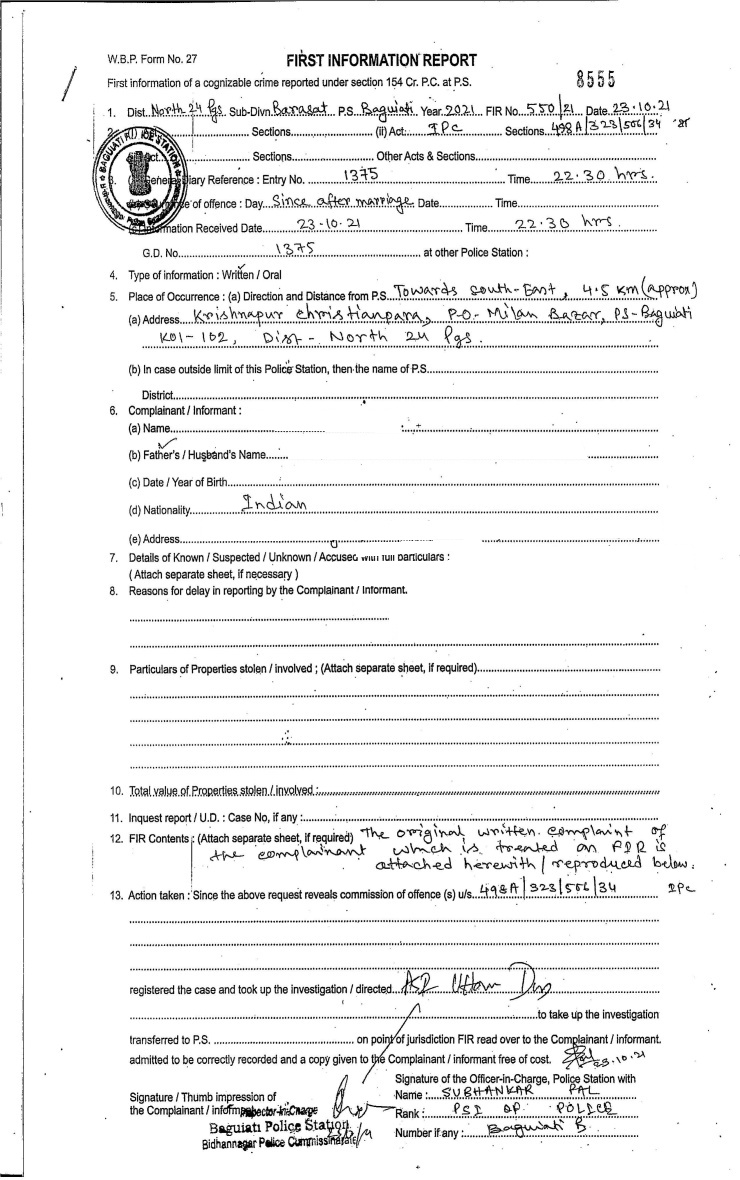 W.B.P. Form No. 27
FIRST INFORMATION REPORT
First information of a cognizable crime reported under section 154 Cr. P.C. at P.S.
8555
1. Dist. North 24 Pgs. Sub-Divn. Barasat P.S. Baguiati Year 2021 FIR No. 550/21 Date 23.10.21
Sections (ii) Act: IPC Sections 498A/323/506/34
Act Sections Other Acts & Sections
General Diary Reference : Entry No. 1375 Time 22.30 hrs.
of offence : Day Since after marriage Date Time
Information Received Date 23-10-21 Time 22.30 hrs.
G.D. No. 1375 at other Police Station :
4. Type of information : Written / Oral
5. Place of Occurrence : (a) Direction and Distance from P.S. Towards South-East, 4.5 km (approx)
(a) Address Krishnapur Christianpara, P.O- Milan Bazar, PS-Baguiati
Kol-102, Dist- North 24 Pgs.
(b) In case outside limit of this Police Station, then the name of P.S.
District
6. Complainant / Informant :
(a) Name
(b) Father's / Husband's Name
(c) Date / Year of Birth
(d) Nationality Indian
(e) Address
7. Details of Known / Suspected / Unknown / Accused with full particulars :
( Attach separate sheet, if necessary )
8. Reasons for delay in reporting by the Complainant / Informant.
9. Particulars of Properties stolen / involved ; (Attach separate sheet, if required)
10. Total value of Properties stolen / involved :
11. Inquest report / U.D. : Case No, if any :
12. FIR Contents : (Attach separate sheet, if required) The original written complaint of
the complainant which is treated an FIR is
attached herewith/reproduced below.
13. Action taken : Since the above request reveals commission of offence (s) u/s. 498A/323/506/34 IPC
registered the case and took up the investigation / directed ASI Uttam Das
to take up the investigation
transferred to P.S. on point of jurisdiction FIR read over to the Complainant / informant.
admitted to be correctly recorded and a copy given to the Complainant / informant free of cost. 23.10.21
Signature of the Officer-in-Charge, Police Station with
Signature / Thumb impression of
the Complainant / informant
Name : SUBHANKAR PAL
Rank : PSI OF POLICE
Number if any : Baguiati B
Inspector-in-Charge
Baguiati Police Station
Bidhannagar Police Commissinarate